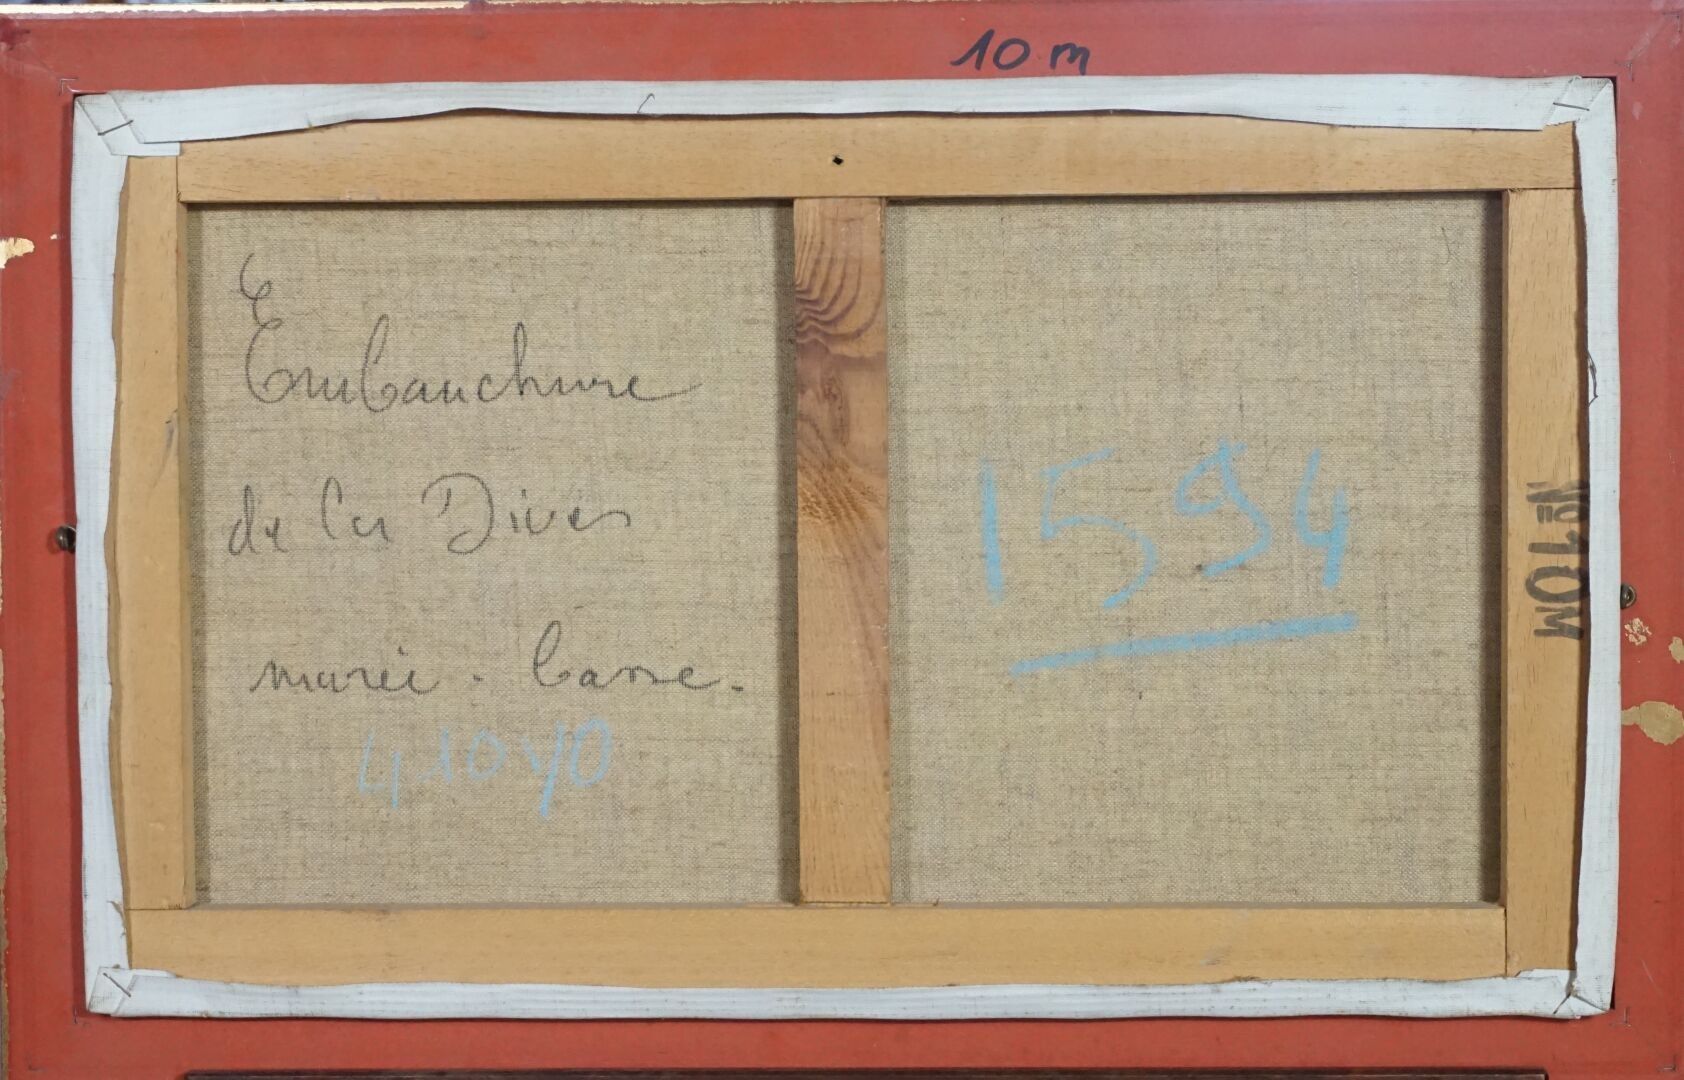 10 m
Embauchure
de la Dives
marée - basse.
41040
1594
N° 10M